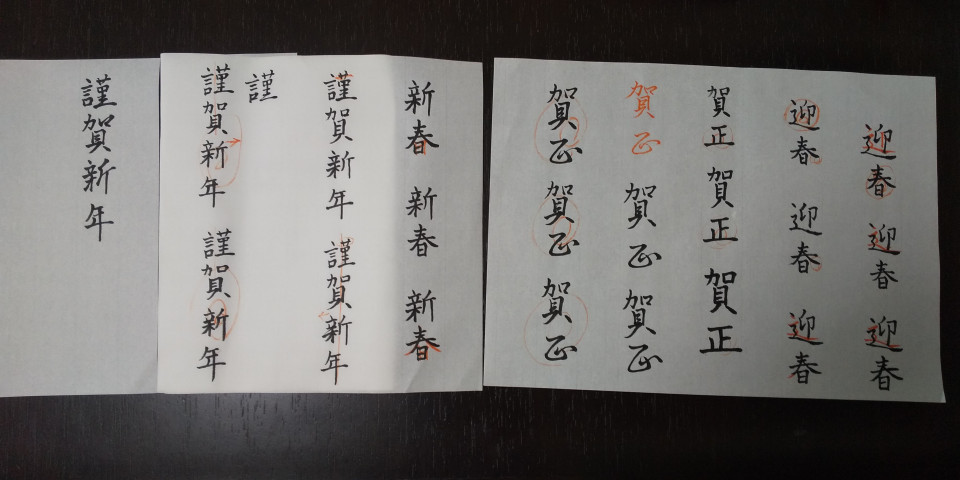 迎春
迎春
迎春
迎春
迎春
迎春
賀正
賀正
賀正
賀正
賀正
賀正
賀正
賀正
賀正
新春
新春
新春
謹賀新年
謹賀新年
謹
謹賀新年
謹賀新年
謹賀新年